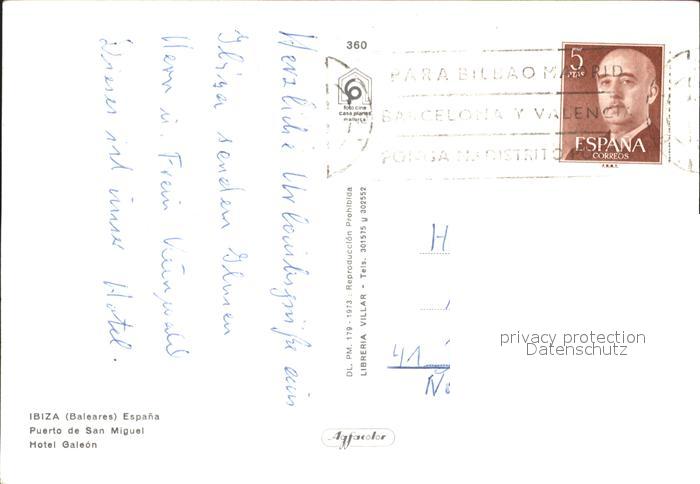 Herzliche Urlaubsgrüße aus
Ibiza senden Ihnen
Herr u. Frau
Dieses ist unser Hotel.
IBIZA (Baleares) España
Puerto de San Miguel
Hotel Galeón
360
foto cine
casa planas
mallorca
DL. PM. 179 - 1973 : Reproducción Prohibida
LIBRERIA VILLAR - Tels. 301575 y 302552
Agfacolor
PARA BILBAO MADRID
BARCELONA Y VALENCIA
PONGA Nº DISTRITO
5
PTAS
ESPAÑA
CORREOS
F.N.M.T.
H
41
privacy protection
Datenschutz